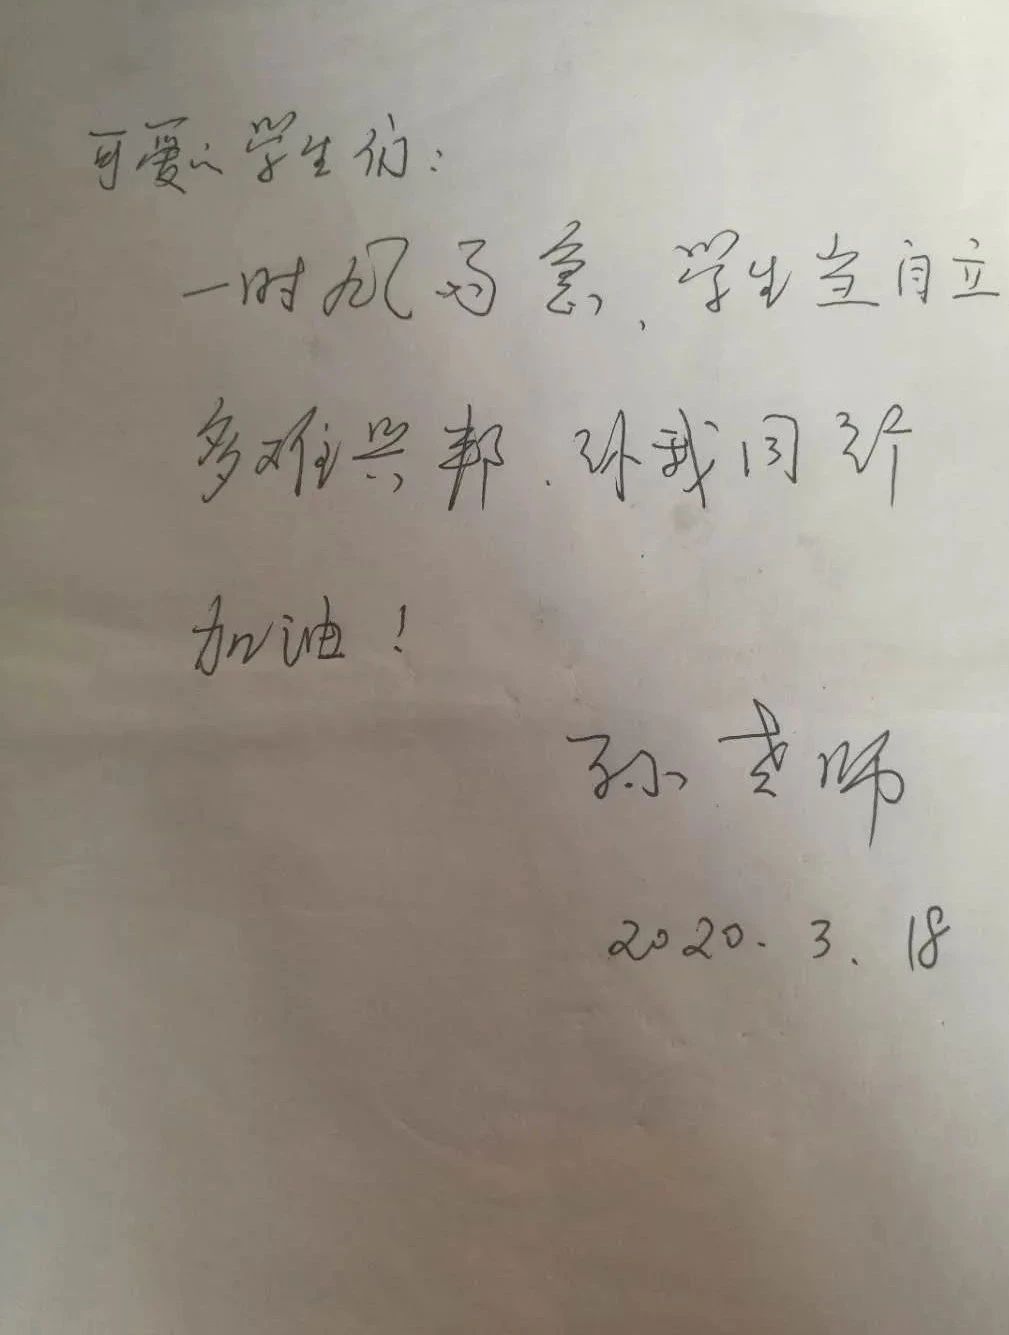 可爱的学生们：
一时风雨急，学生当自立
多难兴邦．你我同行
加油！
孙老师
2020.3.18